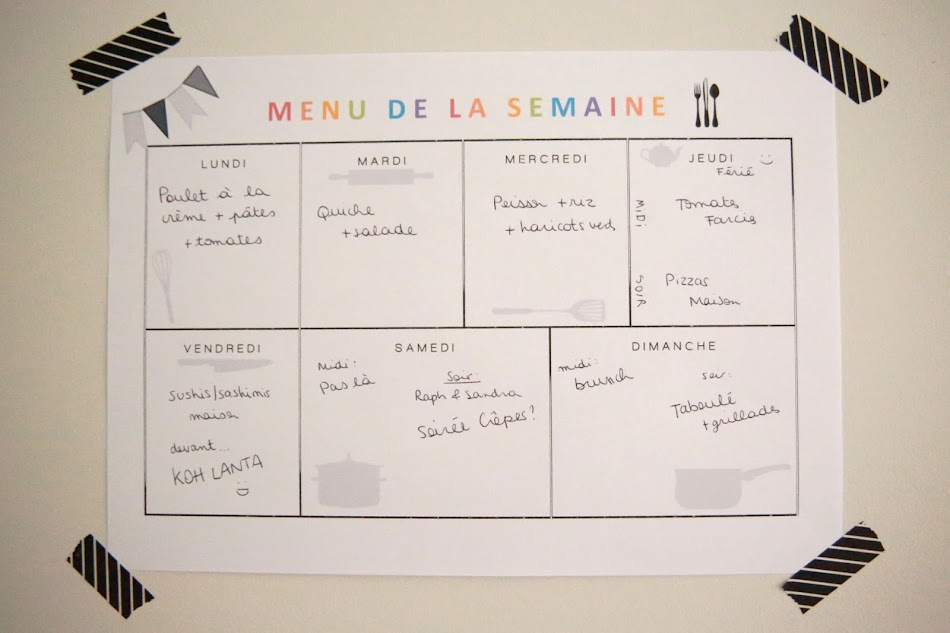 MENU DE LA SEMAINE
LUNDI
Poulet à la
crème + pâtes
+ tomates
MARDI
Quiche
+ salade
MERCREDI
Poisson + riz
+ haricots verts
JEUDI
Férié
MIDI
Tomates
Farcies
SOIR
Pizzas
Maison
VENDREDI
Sushis/sashimis
maison
devant...
KOH LANTA
SAMEDI
Midi:
Pas là
Soir:
Raph & Sandra
Soirée Crêpes?
DIMANCHE
midi:
brunch
soir:
Taboulé
+ grillades